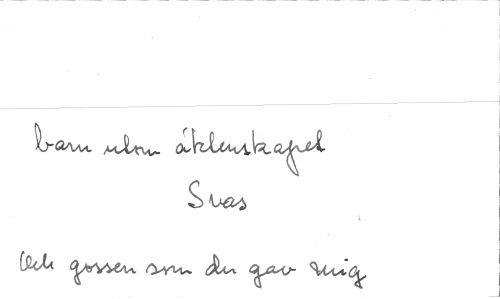 barn utom äktenskapet
Svas
Och gossen som du gav mig